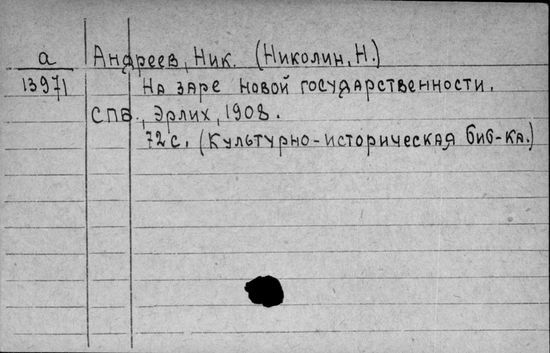 а Андреев, Ник. (Николин, Н.)
13971 На заре новой государственности.
СПБ., Эрлих, 1908.
72с. (Культурно-историческая биб-ка.)